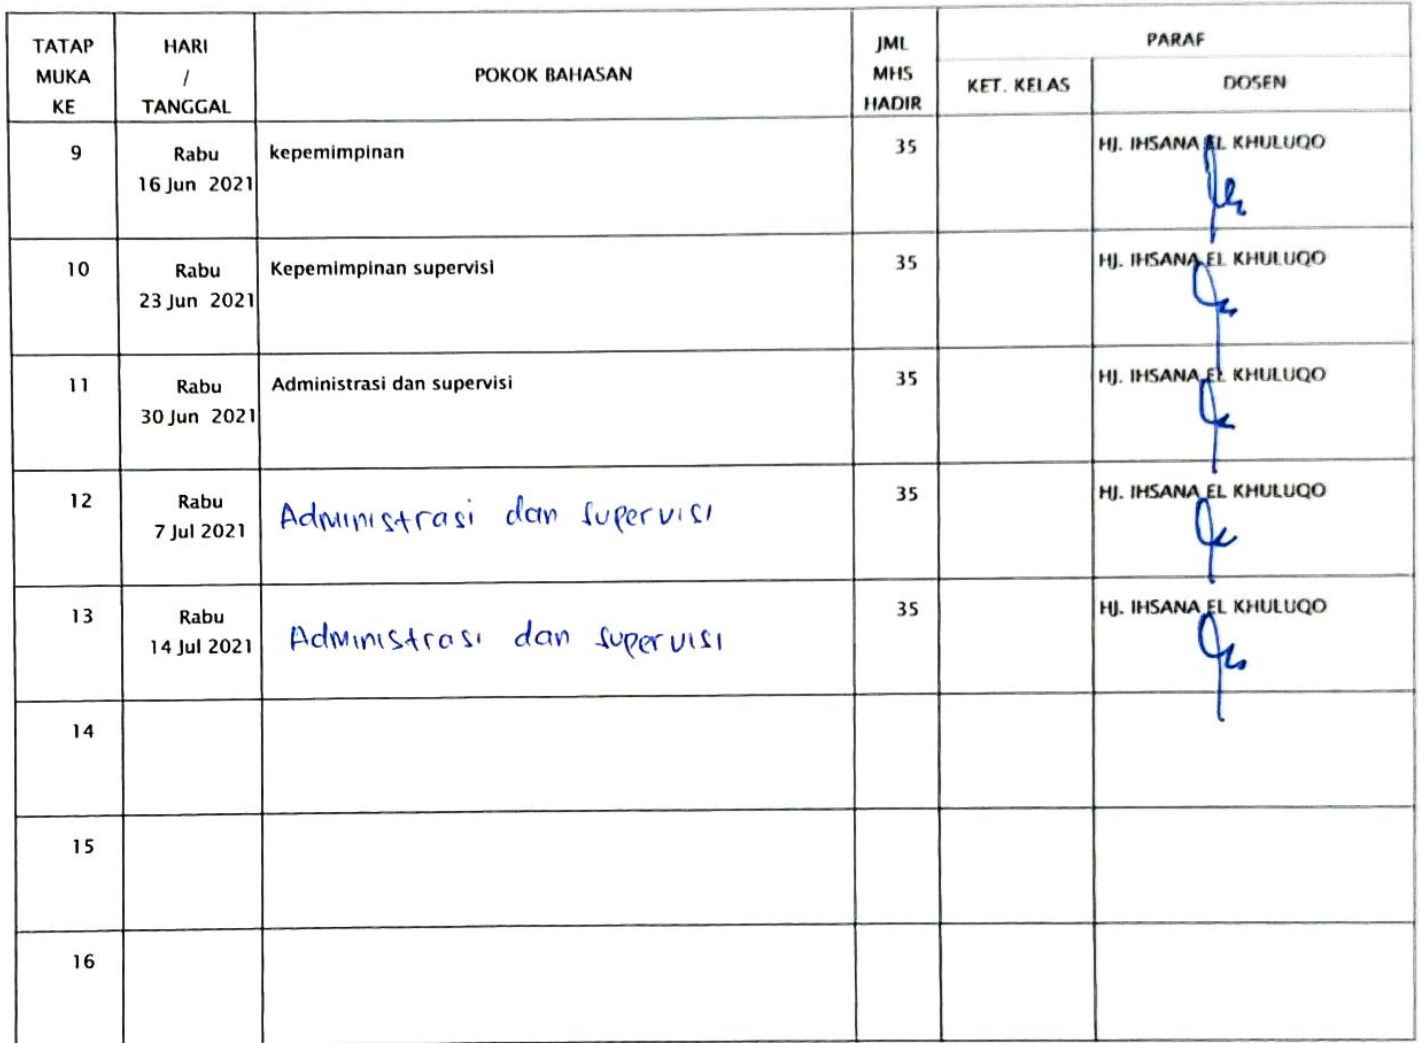 TATAP MUKA KE
HARI / TANGGAL
POKOK BAHASAN
JML MHS HADIR
PARAF
KET. KELAS
DOSEN
9
Rabu
16 Jun 2021
kepemimpinan
35
HJ. IHSANA EL KHULUQO
10
Rabu
23 Jun 2021
Kepemimpinan supervisi
35
HJ. IHSANA EL KHULUQO
11
Rabu
30 Jun 2021
Administrasi dan supervisi
35
HJ. IHSANA EL KHULUQO
12
Rabu
7 Jul 2021
Administrasi dan supervisi
35
HJ. IHSANA EL KHULUQO
13
Rabu
14 Jul 2021
Administrasi dan supervisi
35
HJ. IHSANA EL KHULUQO
14
15
16